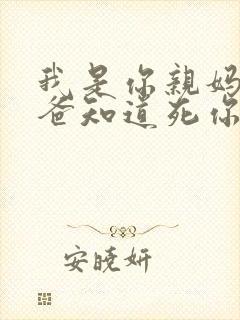 我是你親媽
爸知道死你
安曉妍